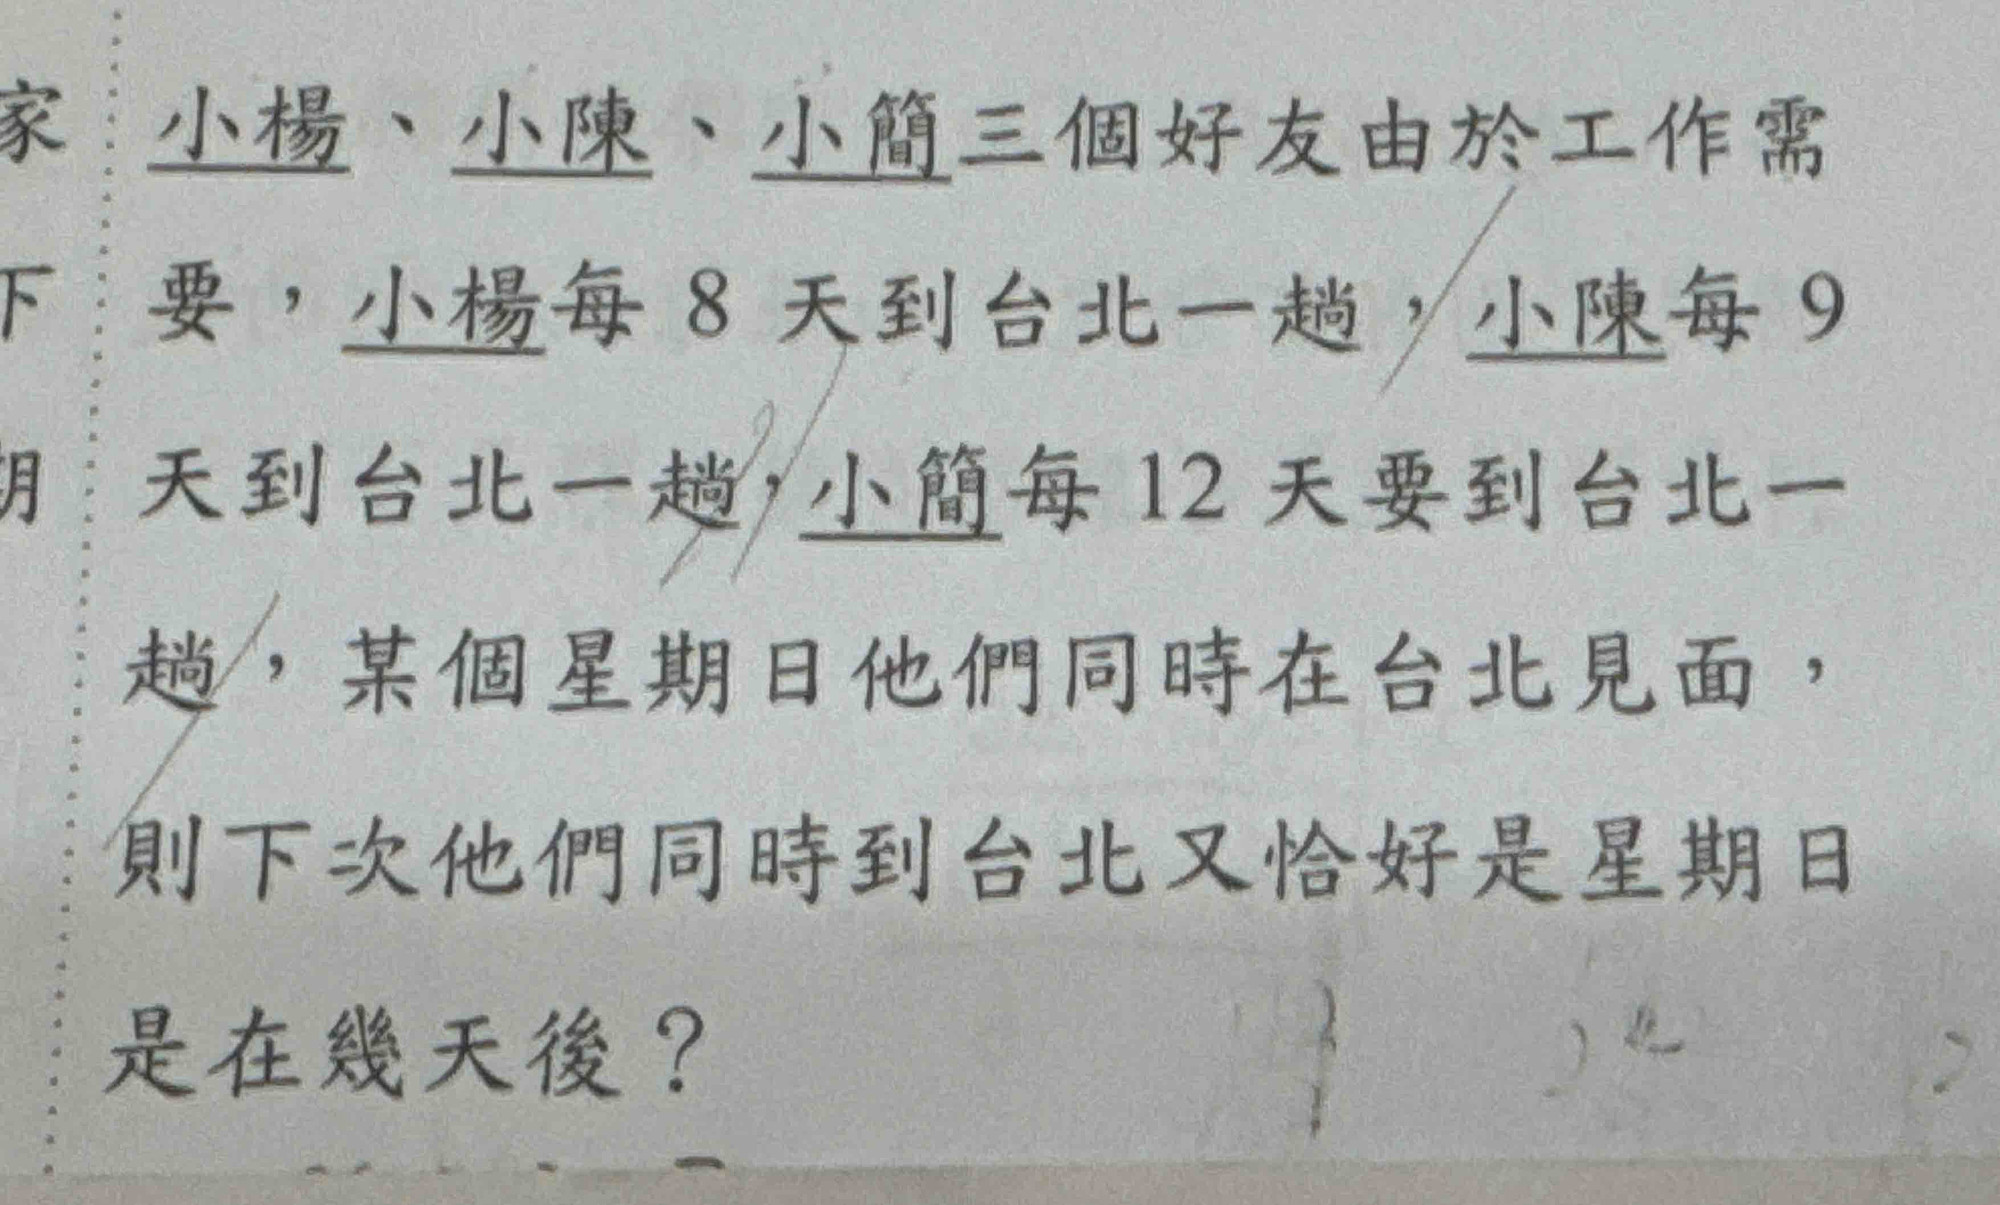 家
下
期
小楊、小陳、小簡三個好友由於工作需
要，小楊每 8 天到台北一趟，小陳每 9
天到台北一趟，小簡每 12 天要到台北一
趟，某個星期日他們同時在台北見面，
則下次他們同時到台北又恰好是星期日
是在幾天後？